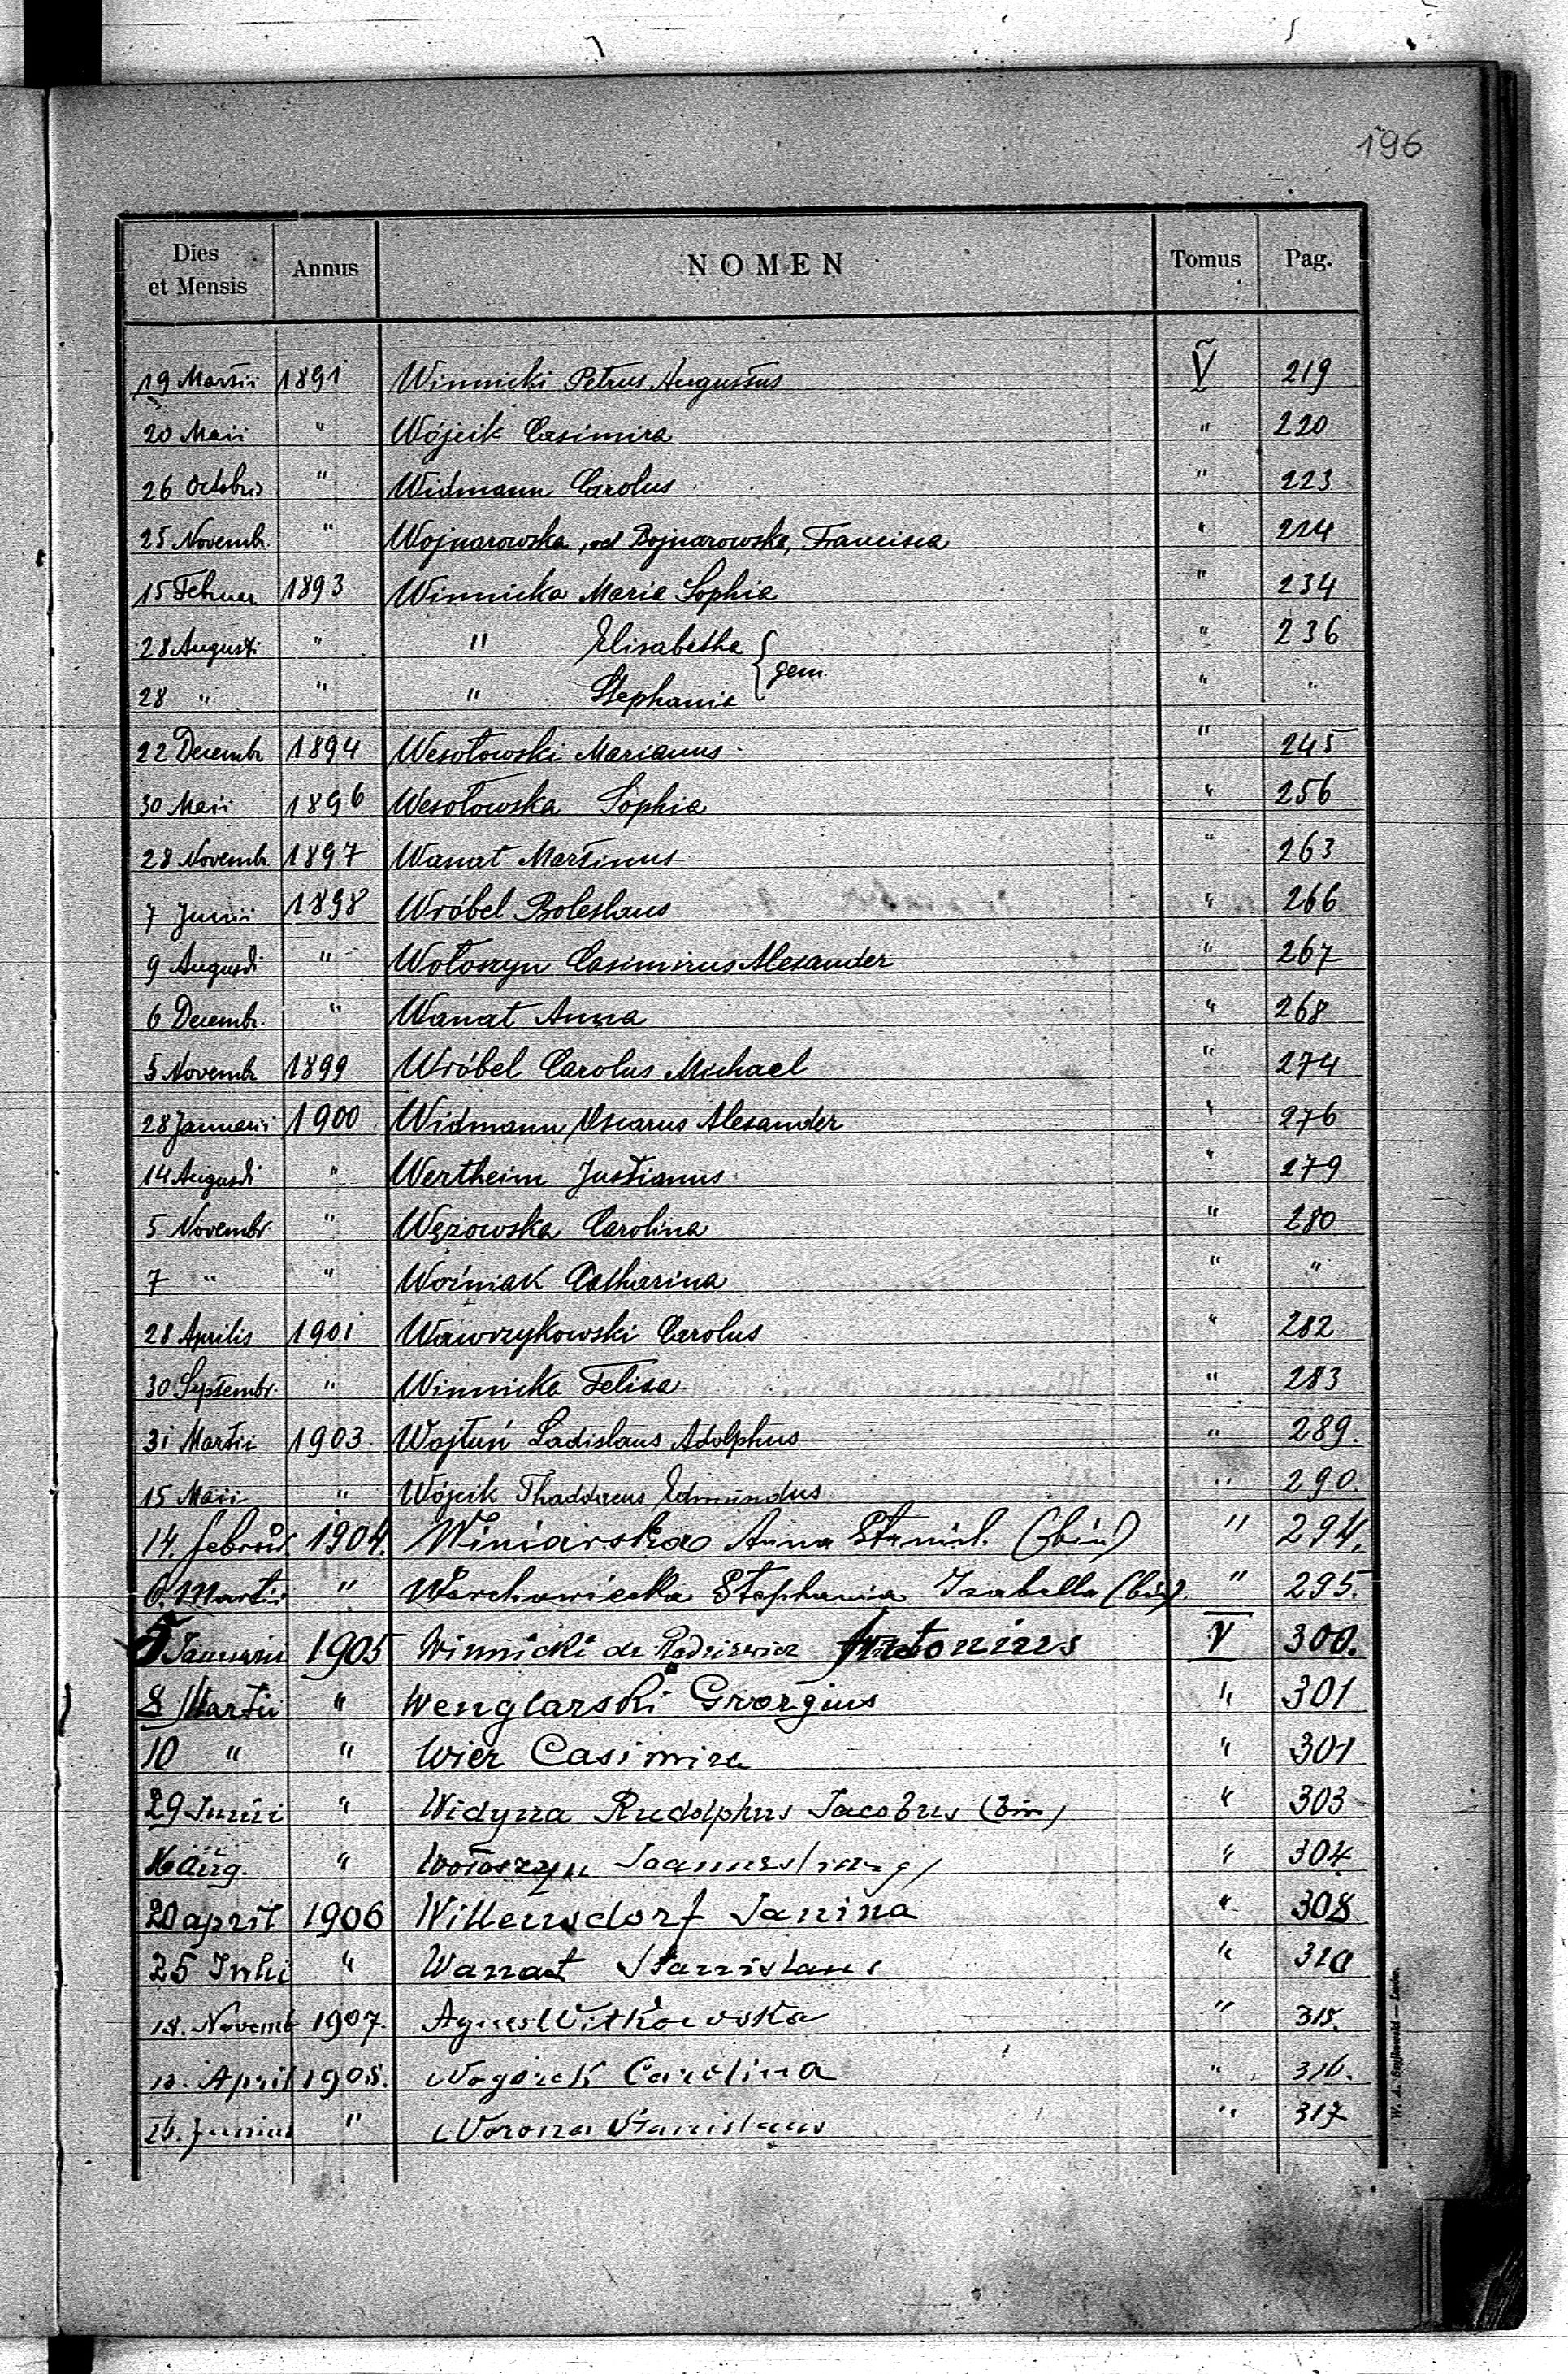 196
Dies et Mensis Annus NOMEN Tomus Pag.
19 Martii 1891 Winnicki Petrus Augustus V 219
20 Maii " Wójcik Casimira " 220
26 Octobris " Widmann Carolus " 223
25 Novembr. " Wojnarowska, vel Bojnarowska, Francisca " 224
15 Februar 1893 Winnicka Maria Sophia " 234
28 Augusti " " Elisabetha } gem. " 236
28 " " " Stephania " "
22 Decembr 1894 Wesołowski Marianus " 245
30 Maii 1896 Wesołowska Sophia " 256
28 Novembr. 1897 Wanat Martinus " 263
7 Junii 1898 Wróbel Boleslaus " 266
9 Augusti " Wołoszyn Casimirus Alexander " 267
6 Decembr. " Wanat Anna " 268
5 Novembr 1899 Wróbel Carolus Michael " 274
28 Januarii 1900 Widmann Oscarus Alexander " 276
14 Augusti " Wertheim Justianus " 279
5 Novembr. " Wężowska Carolina " 280
7 " " Woźniak Catharina " "
28 Aprilis 1901 Wawrzykowski Carolus " 282
30 Septembr. " Winnicka Felixa " 283
31 Martii 1903. Wojtuń Ladislaus Adolphus " 289.
15 Maii " Wójcik Thaddaeus Edmundus " 290.
14. Februar. 1904. Winiarska Anna Stanisl. " 294.
6. Martii " Stephania Izabella (bin) " 295.
5 Januarii 1905 Winnicki de Radziewicz Antonius V 300.
8 Martii " Wenglarski Georgius " 301
10 " " Wier Casimira " 301
29 Junii " Widyna Rudolphus Jacobus (bin) " 303
16 Aug. " Wołoszyn Joannes " 304
20 april 1906 Willensdorf Janina " 308
25 Julii " Wanat Stanislaus " 310
18. Novemb 1907. Agnes Witkowska " 315.
April 1908. Carolina " 316.
Junius " Worona Stanislaus " 317